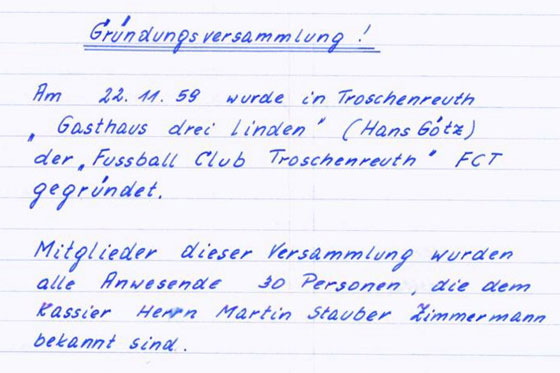 Gründungsversammlung !
Am 22.11.59 wurde in Troschenreuth
„Gasthaus drei Linden" (Hans Götz)
der „Fussball Club Troschenreuth" FCT
gegründet.
Mitglieder dieser Versammlung wurden
alle Anwesende 30 Personen, die dem
Kassier Herrn Martin Stauber Zimmermann
bekannt sind.